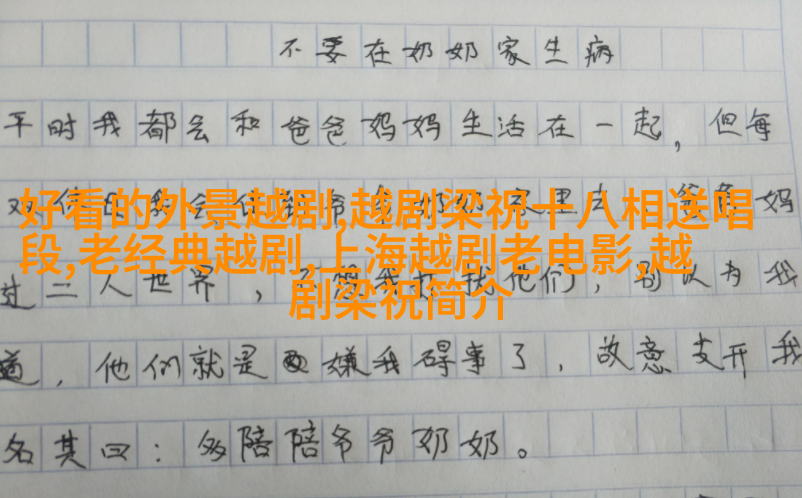 不要在奶奶家生病
平时我都会和爸爸妈妈生活在一起，但每
好看的外景越剧,越剧梁祝十八相送唱
段,老经典越剧,上海越剧老电影,越
剧梁祝简介
过二人世界，我他们，别以为我
道，他们就是嫌我碍事了，故意支开我
名其曰：多陪陪爷爷奶奶。